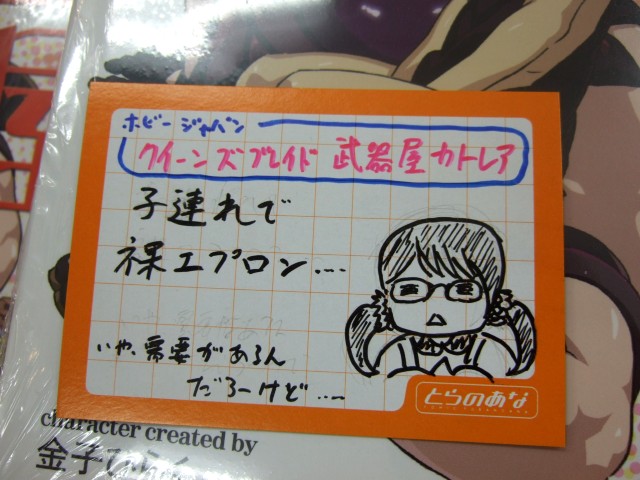 ホビージャパン
クイーンズブレイド 武器屋カトレア
子連れで
裸エプロン....
いや、需要があるん
だろーけど....
とらのあな
character created by
金子ひらく